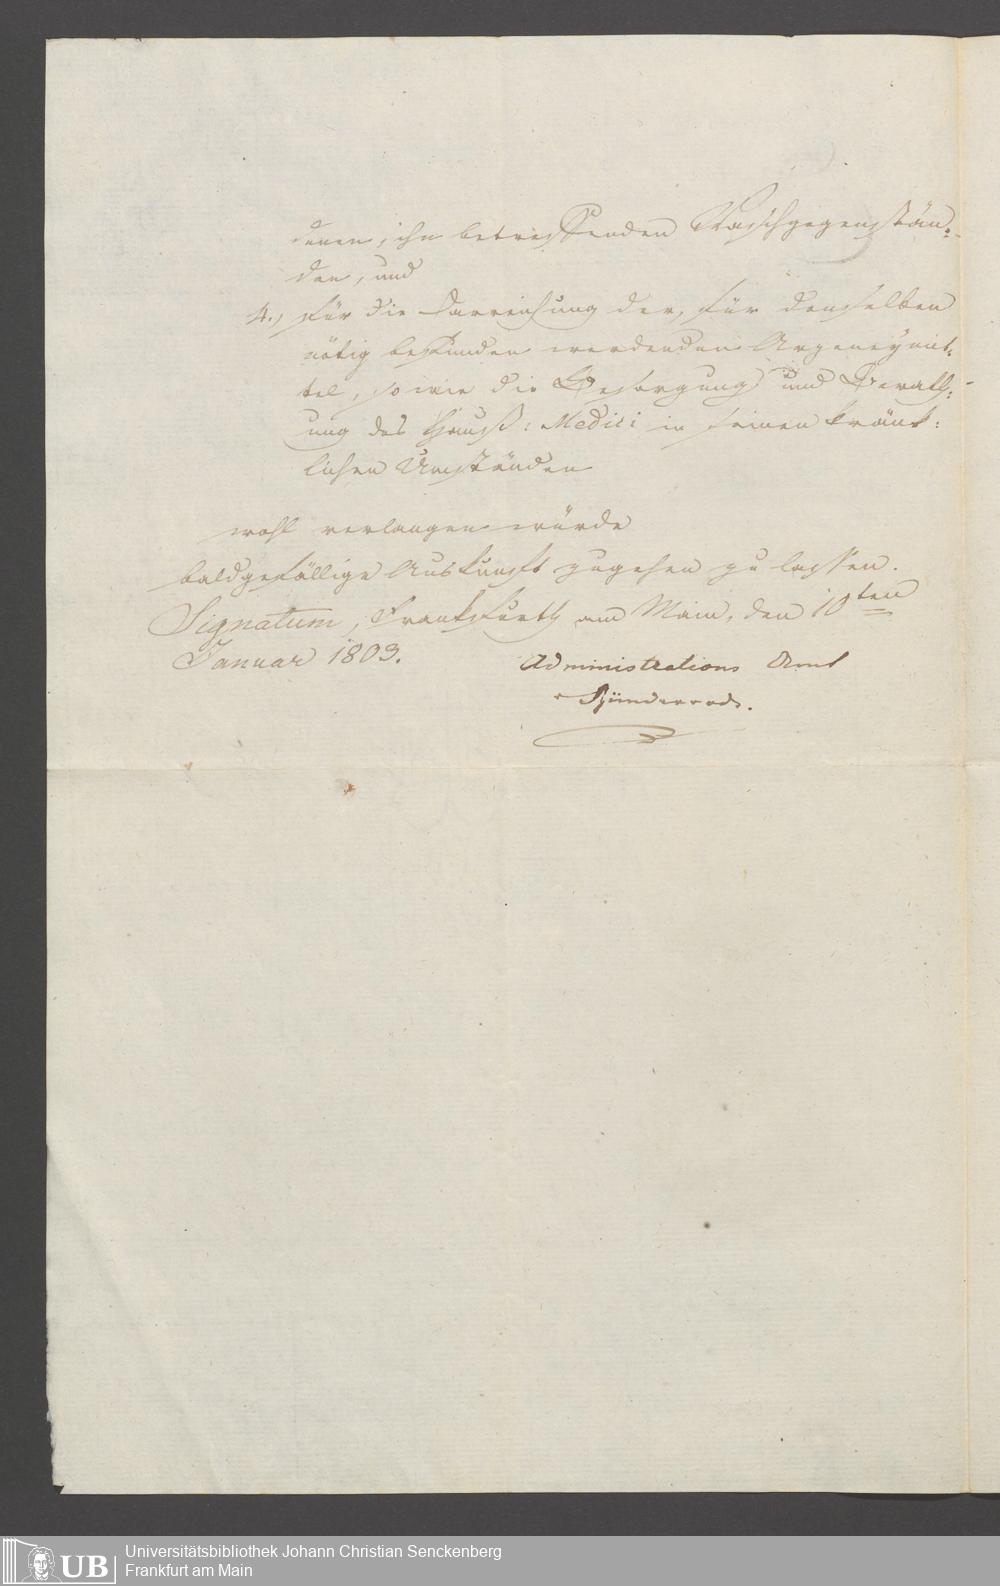 denen, ihn betreffenden Waschgegenstän=
den, und
4., für die Darreichung der, für denselben
nötig befunden werdenden Arzeneymit=
tel, sowie die Besorgung und Berath=
ung des Hauß: Medici in seinen kränk=
lichen Umständen
wohl verlangen würde
baldgefällige Auskunft zugehen zu lassen.
Signatum, Frankfurth am Main, den 10ten
Januar 1803.
Administrations Amt
Günderrode.
UB Universitätsbibliothek Johann Christian Senckenberg
Frankfurt am Main